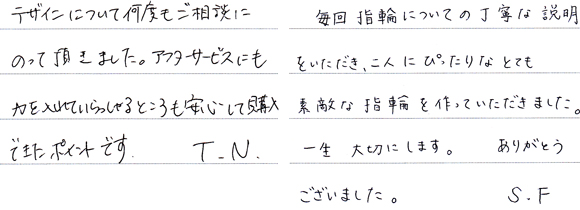 デザインについて何度もご相談に
のって頂きました。アフターサービスにも
力を入れていらっしゃるところも安心して購入
できたポイントです。 T.N.
毎回指輪についての丁寧な説明
をいただき、二人にぴったりなとても
素敵な指輪を作っていただきました。
一生大切にします。 ありがとう
ございました。 S.F